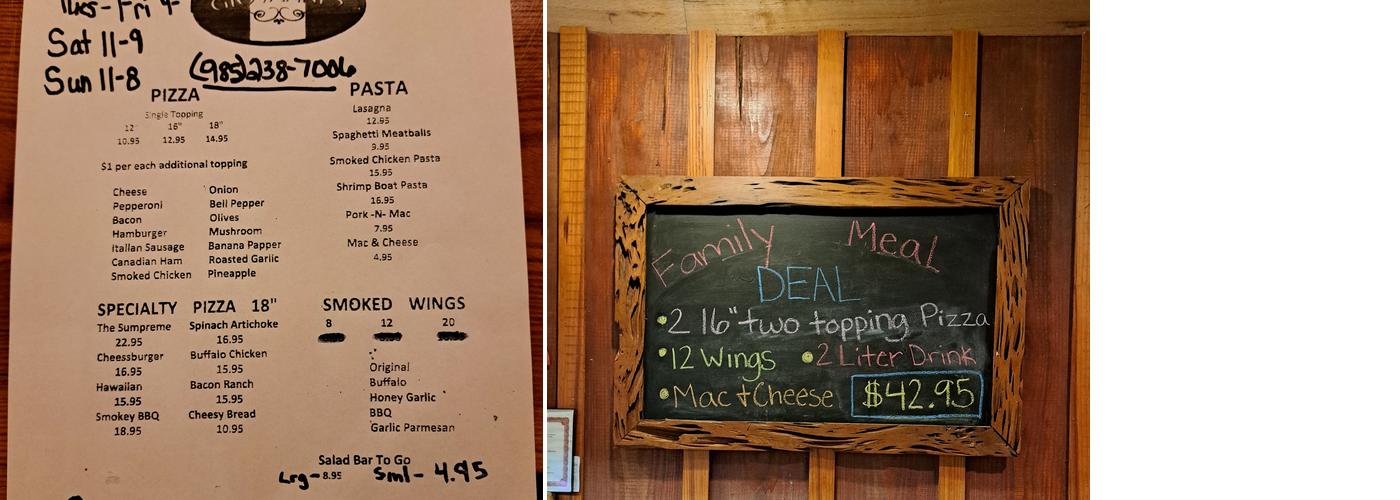 Sat 11-9
Sun 11-8
(985)238-7006
PIZZA
Single Topping
12" 16" 18"
10.95 12.95 14.95
$1 per each additional topping
Cheese Onion
Pepperoni Bell Pepper
Bacon Olives
Hamburger Mushroom
Italian Sausage Banana Papper
Canadian Ham Roasted Garlic
Smoked Chicken Pineapple
PASTA
Lasagna
12.95
Spaghetti Meatballs
9.95
Smoked Chicken Pasta
15.95
Shrimp Boat Pasta
16.95
Pork -N- Mac
7.95
Mac & Cheese
4.95
SPECIALTY PIZZA 18"
The Sumpreme Spinach Artichoke
22.95 16.95
Cheessburger Buffalo Chicken
16.95 15.95
Hawaiian Bacon Ranch
15.95 15.95
Smokey BBQ Cheesy Bread
18.95 10.95
SMOKED WINGS
8 12 20
Original
Buffalo
Honey Garlic
BBQ
Garlic Parmesan
Salad Bar To Go
Lrg- 8.95 Sml- 4.95
Family Meal
DEAL
•2 16" two topping Pizza
•12 Wings •2 Liter Drink
•Mac + Cheese $42.95